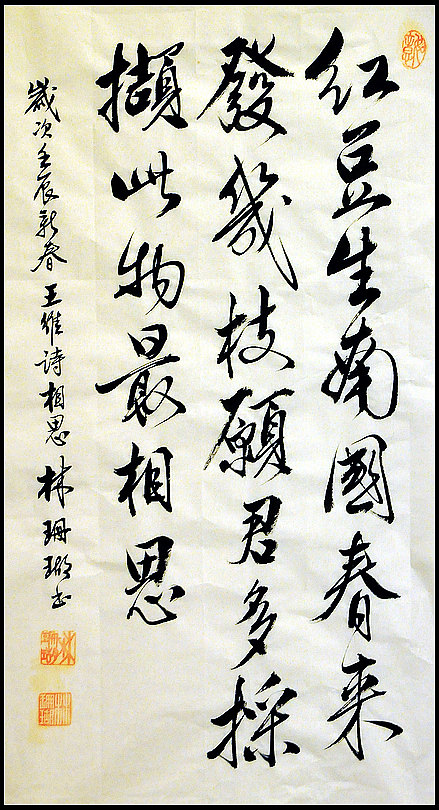 红豆生南國春来
發幾枝願君多採
擷此物最相思
歲次壬辰新春王維诗相思林珊瑚书